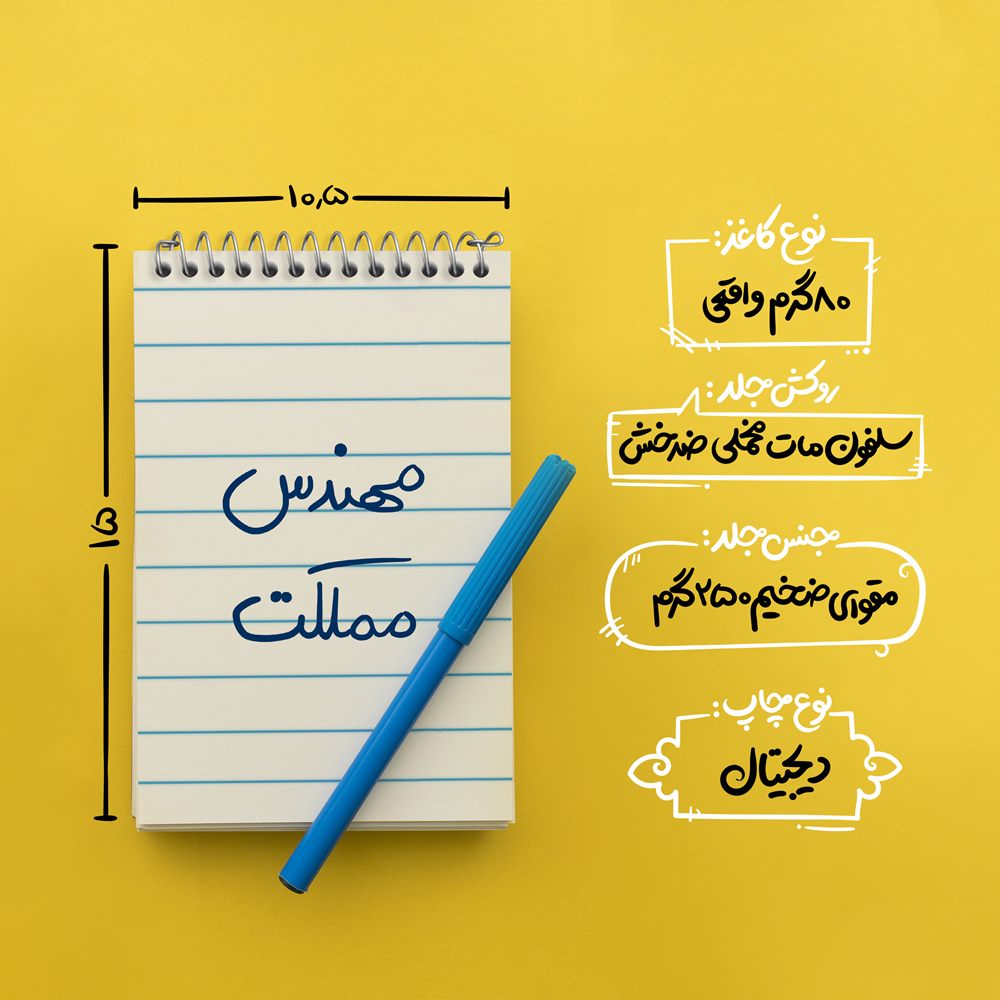 ۱۰,۵
۱۵
مهندس
مملکت
نوع کاغذ:
۸۰گرم واقعی
روکش جلد:
سلفون مات مخملی ضدخش
جنس جلد:
مقوای ضخیم ۲۵۰گرم
نوع چاپ:
دیجیتال